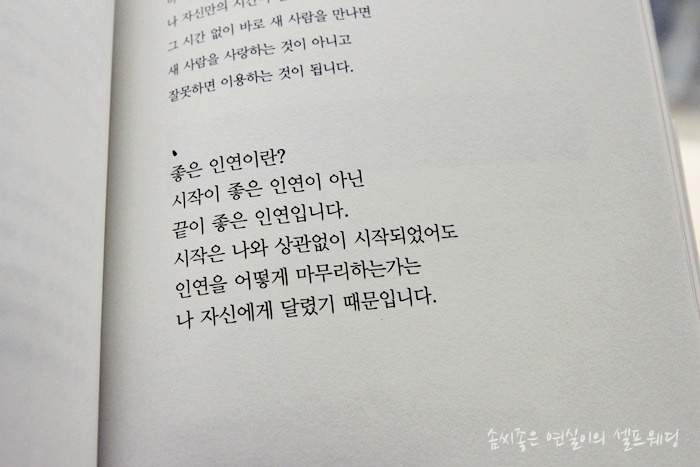 나 자신만의 시간이
그 시간 없이 바로 새 사람을 만나면
새 사람을 사랑하는 것이 아니고
잘못하면 이용하는 것이 됩니다.
좋은 인연이란?
시작이 좋은 인연이 아닌
끝이 좋은 인연입니다.
시작은 나와 상관없이 시작되었어도
인연을 어떻게 마무리하는가는
나 자신에게 달렸기 때문입니다.
솜씨좋은 연실이의 셀프웨딩